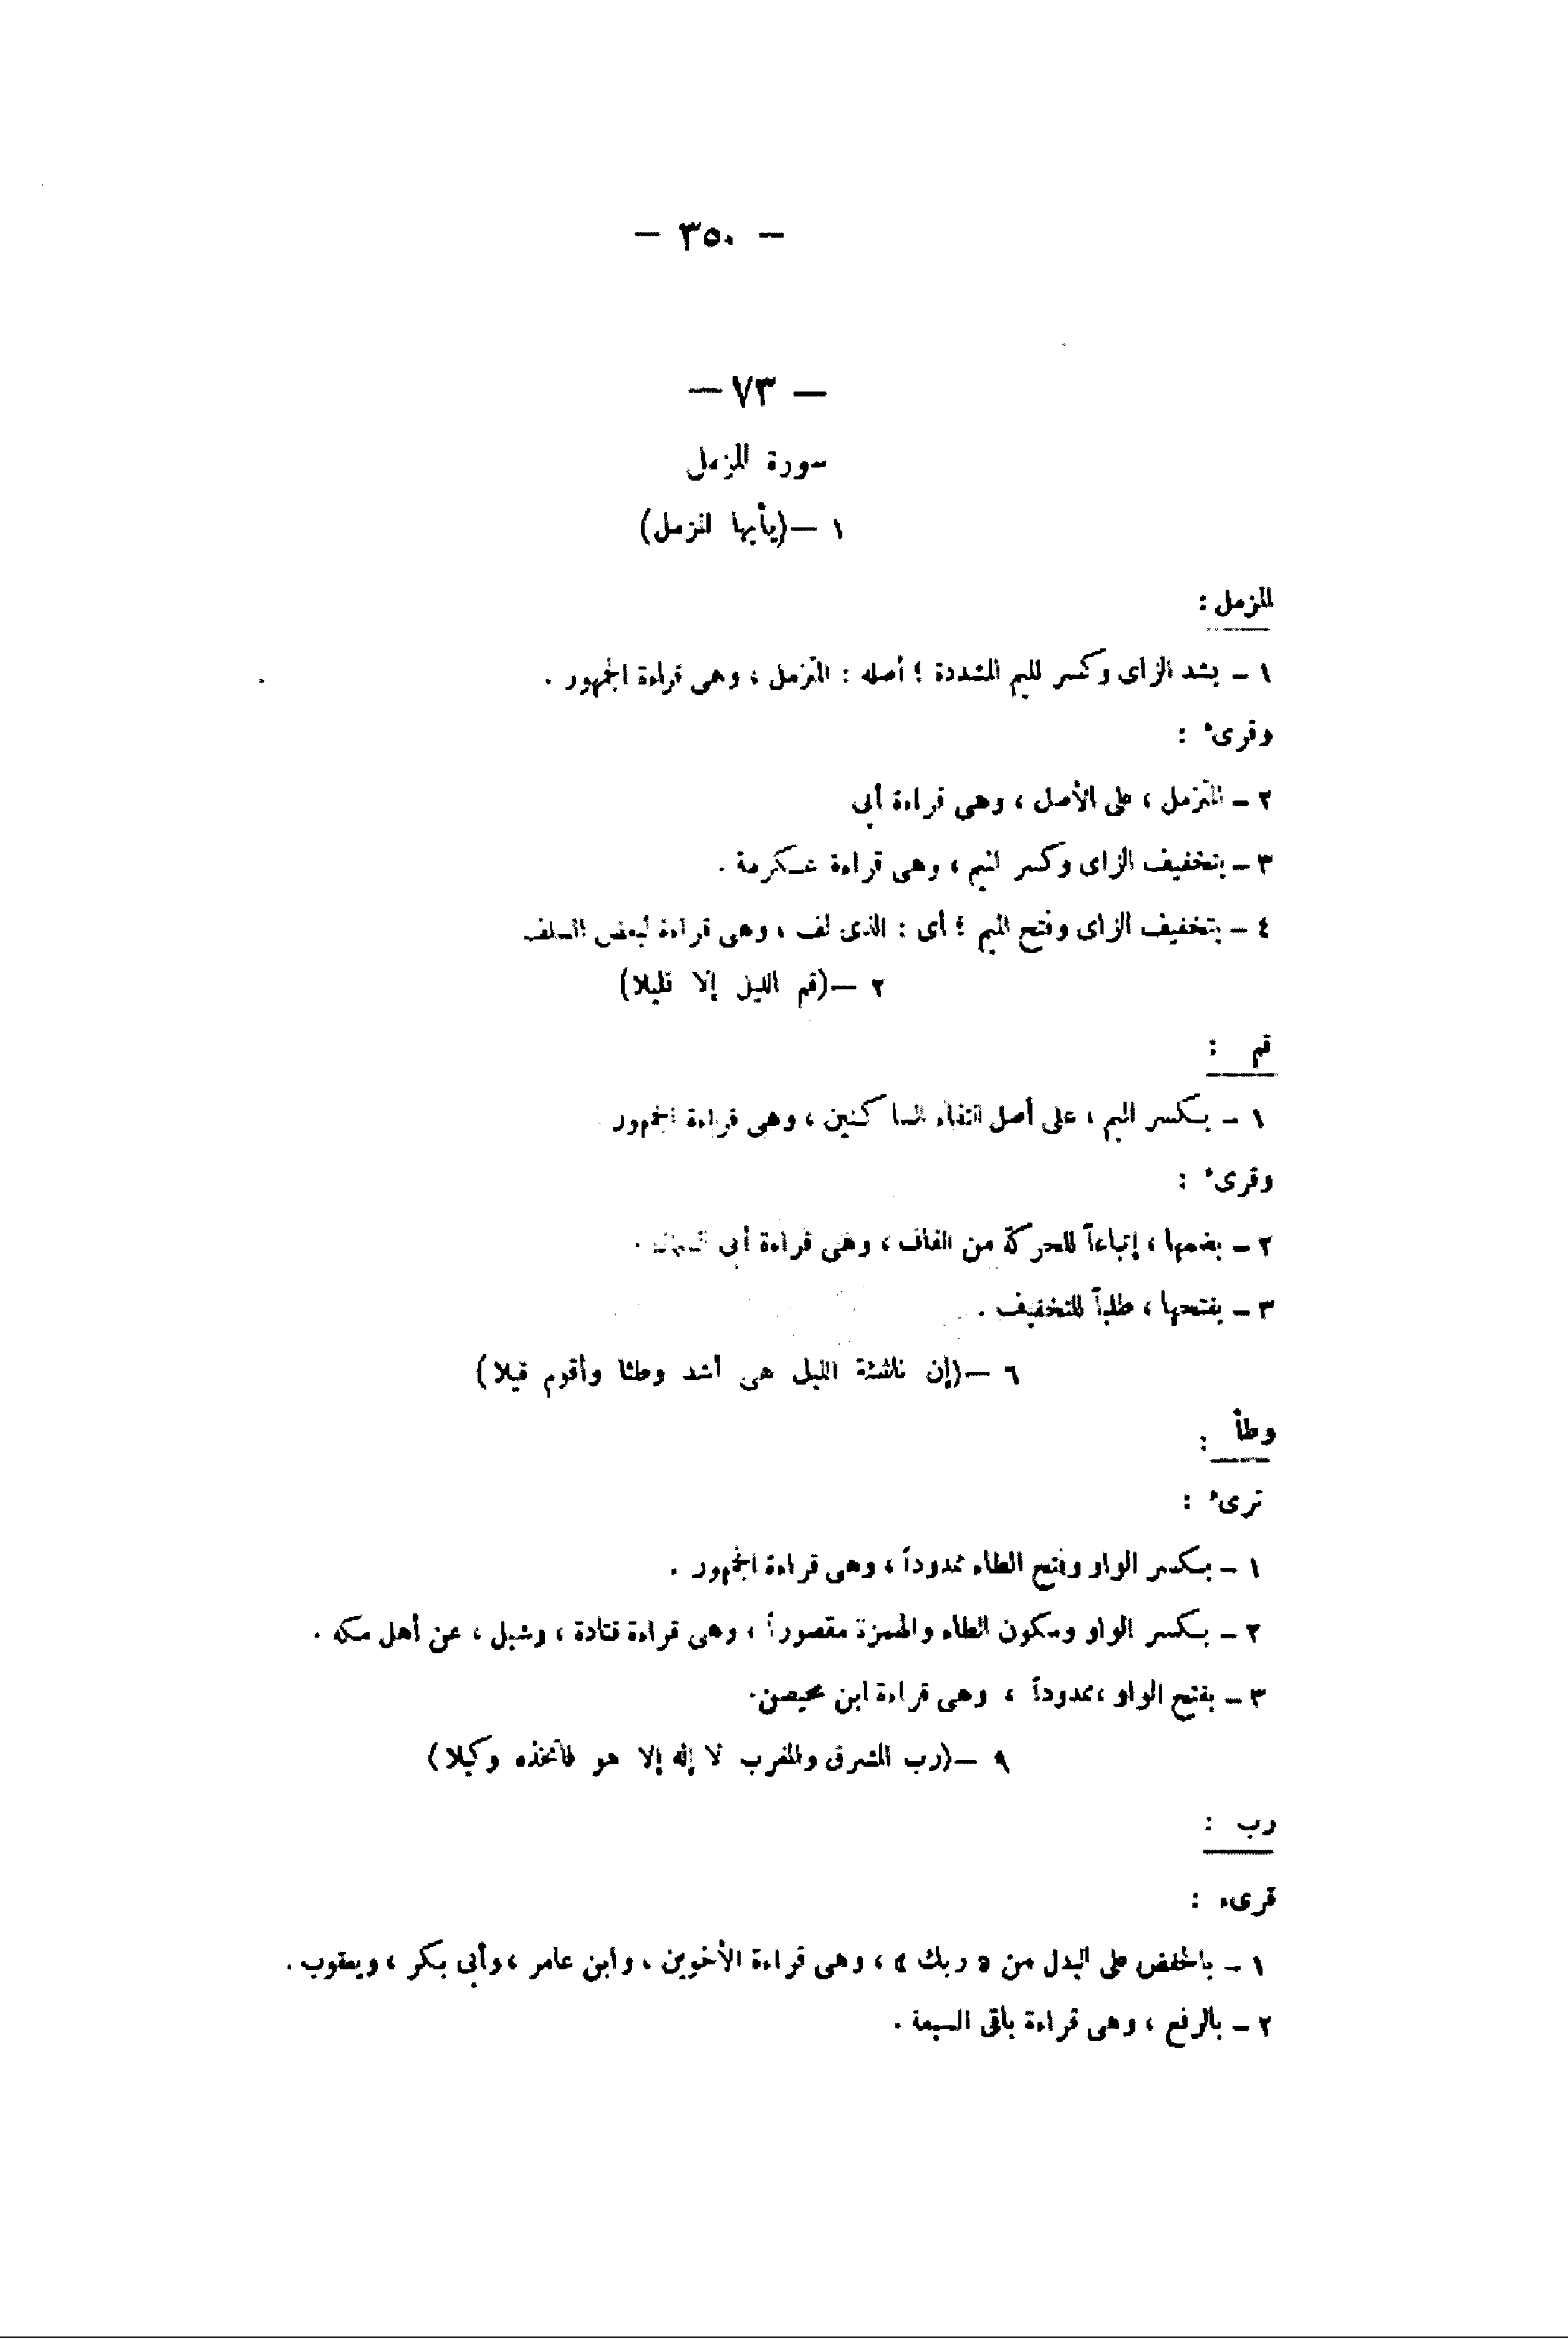 — ٣٥٠ —
— ٧٣ —
سورة المزمل
١ — (يأيها المزمل)
المزمل :
١ – بشد الزاى وكسر الميم المشددة ؛ أصله : المتزمل ، وهى قراءة الجمهور .
وقرىء :
٢ – المتزمل ، على الأصل ، وهى قراءة أبى
٣ – بتخفيف الزاى وكسر الميم ، وهى قراءة عكرمة .
٤ – بتخفيف الزاى وفتح الميم ؛ أى : الذى لف ، وهى قراءة لبعض السلف
٢ — (قم الليل إلا قليلا)
قم :
١ – بكسر الميم ، على أصل التقاء الساكنين ، وهى قراءة الجمهور
وقرىء :
٢ – بضمها ، إتباعاً للحركة من القاف ، وهى قراءة أبى السمال .
٣ – بفتحها ، طلباً للتخفيف .
٦ — (إن ناشئة الليل هى أشد وطئا وأقوم قيلا)
وطأ :
قرىء :
١ – بكسر الواو وفتح الطاء ممدوداً ، وهى قراءة الجمهور .
٢ – بكسر الواو وسكون الطاء والهمزة مقصوراً ، وهى قراءة قتادة ، وشبل ، عن أهل مكة .
٣ – بفتح الواو ، ممدوداً ، وهى قراءة ابن محيصن .
٩ — (رب المشرق والمغرب لا إله إلا هو فاتخذه وكيلا)
رب :
قرىء :
١ – بالخفض على البدل من « ربك » ، وهى قراءة الأخوين ، وابن عامر ، وأبى بكر ، ويعقوب .
٢ – بالرفع ، وهى قراءة باقى السبعة .